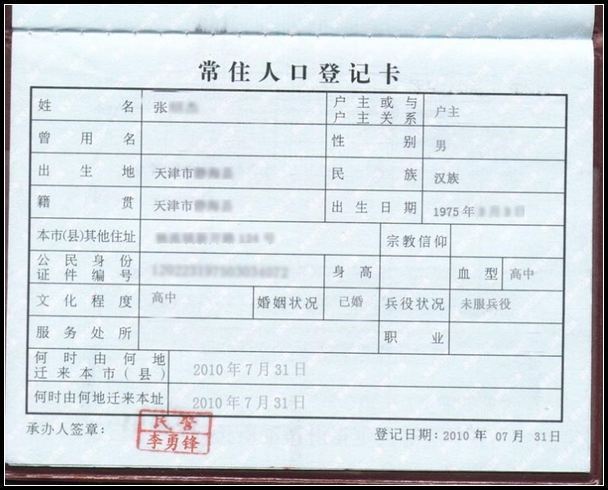 常住人口登记卡
姓名 张 户主或与户主关系 户主
曾用名 性别 男
出生地 天津市 民族 汉族
籍贯 天津市 出生日期 1975年
本市(县)其他住址 宗教信仰
公民身份证件编号 身高 血型 高中
文化程度 高中 婚姻状况 已婚 兵役状况 未服兵役
服务处所 职业
何时由何地迁来本市(县) 2010年7月31日
何时由何地迁来本址 2010年7月31日
承办人签章: 民警 李勇锋 登记日期:2010年 07月 31日